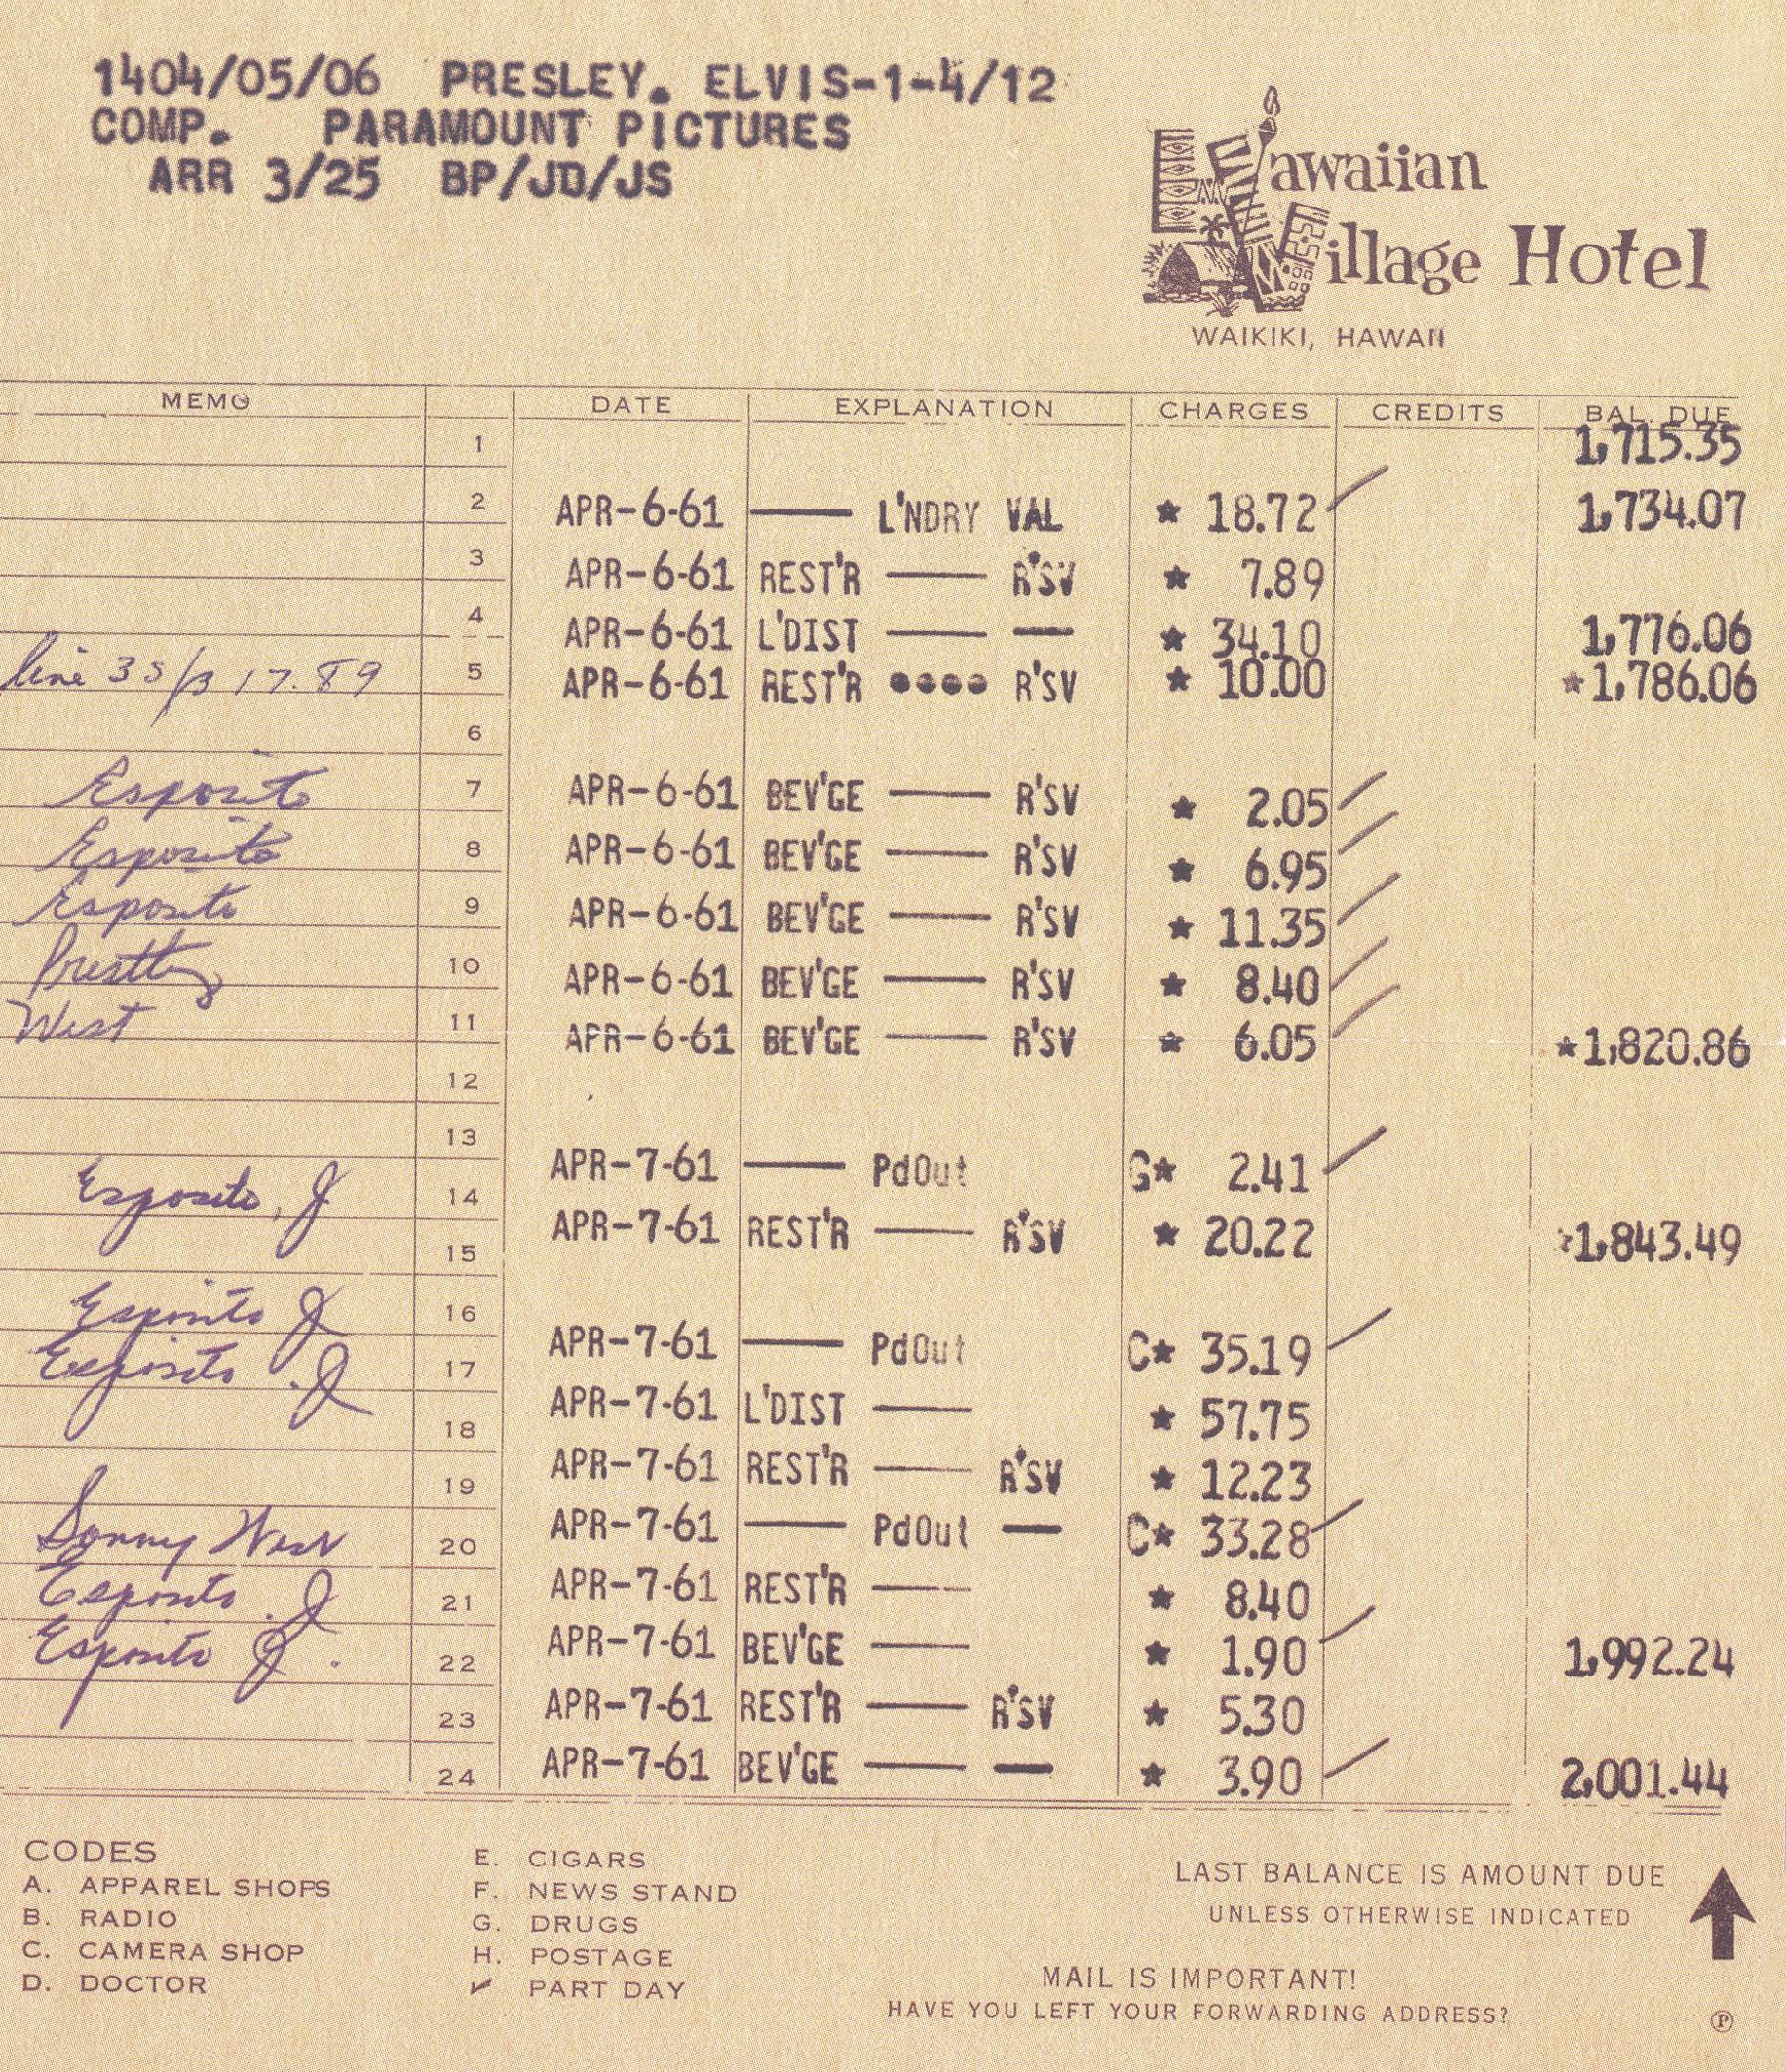 1404/05/06 PRESLEY. ELVIS-1-4/12
COMP. PARAMOUNT PICTURES
ARR 3/25 BP/JD/JS
Hawaiian
Village Hotel
WAIKIKI, HAWAII
MEMO DATE EXPLANATION CHARGES CREDITS BAL. DUE
1 1,715.35
2 APR-6-61 — L'NDRY VAL * 18.72 1,734.07
3 APR-6-61 REST'R — R'SV * 7.89
4 APR-6-61 L'DIST — — * 34.10 1,776.06
line 3 S/B 17.89 5 APR-6-61 REST'R •••• R'SV * 10.00 *1,786.06
6
Esposito 7 APR-6-61 BEV'GE — R'SV * 2.05
Esposito 8 APR-6-61 BEV'GE — R'SV * 6.95
Esposito 9 APR-6-61 BEV'GE — R'SV * 11.35
Prestley 10 APR-6-61 BEV'GE — R'SV * 8.40
West 11 APR-6-61 BEV'GE — R'SV * 6.05 *1,820.86
12
13
APR-7-61 — PdOut G* 2.41
Esposito, J 14
APR-7-61 REST'R — R'SV * 20.22 1,843.49
15
Esposito J 16
APR-7-61 — PdOut C* 35.19
Esposito .J 17
APR-7-61 L'DIST — * 57.75
18
APR-7-61 REST'R — R'SV * 12.23
19
APR-7-61 — PdOut — C* 33.28
Sonny West 20
APR-7-61 REST'R — * 8.40
Esposito . J 21
APR-7-61 BEV'GE — * 1.90 1,992.24
Esposito J . 22
APR-7-61 REST'R — R'SV * 5.30
23
APR-7-61 BEV'GE — — * 3.90 2,001.44
24
CODES
A. APPAREL SHOPS
B. RADIO
C. CAMERA SHOP
D. DOCTOR
E. CIGARS
F. NEWS STAND
G. DRUGS
H. POSTAGE
✓ PART DAY
LAST BALANCE IS AMOUNT DUE
UNLESS OTHERWISE INDICATED
MAIL IS IMPORTANT!
HAVE YOU LEFT YOUR FORWARDING ADDRESS?
Ⓟ